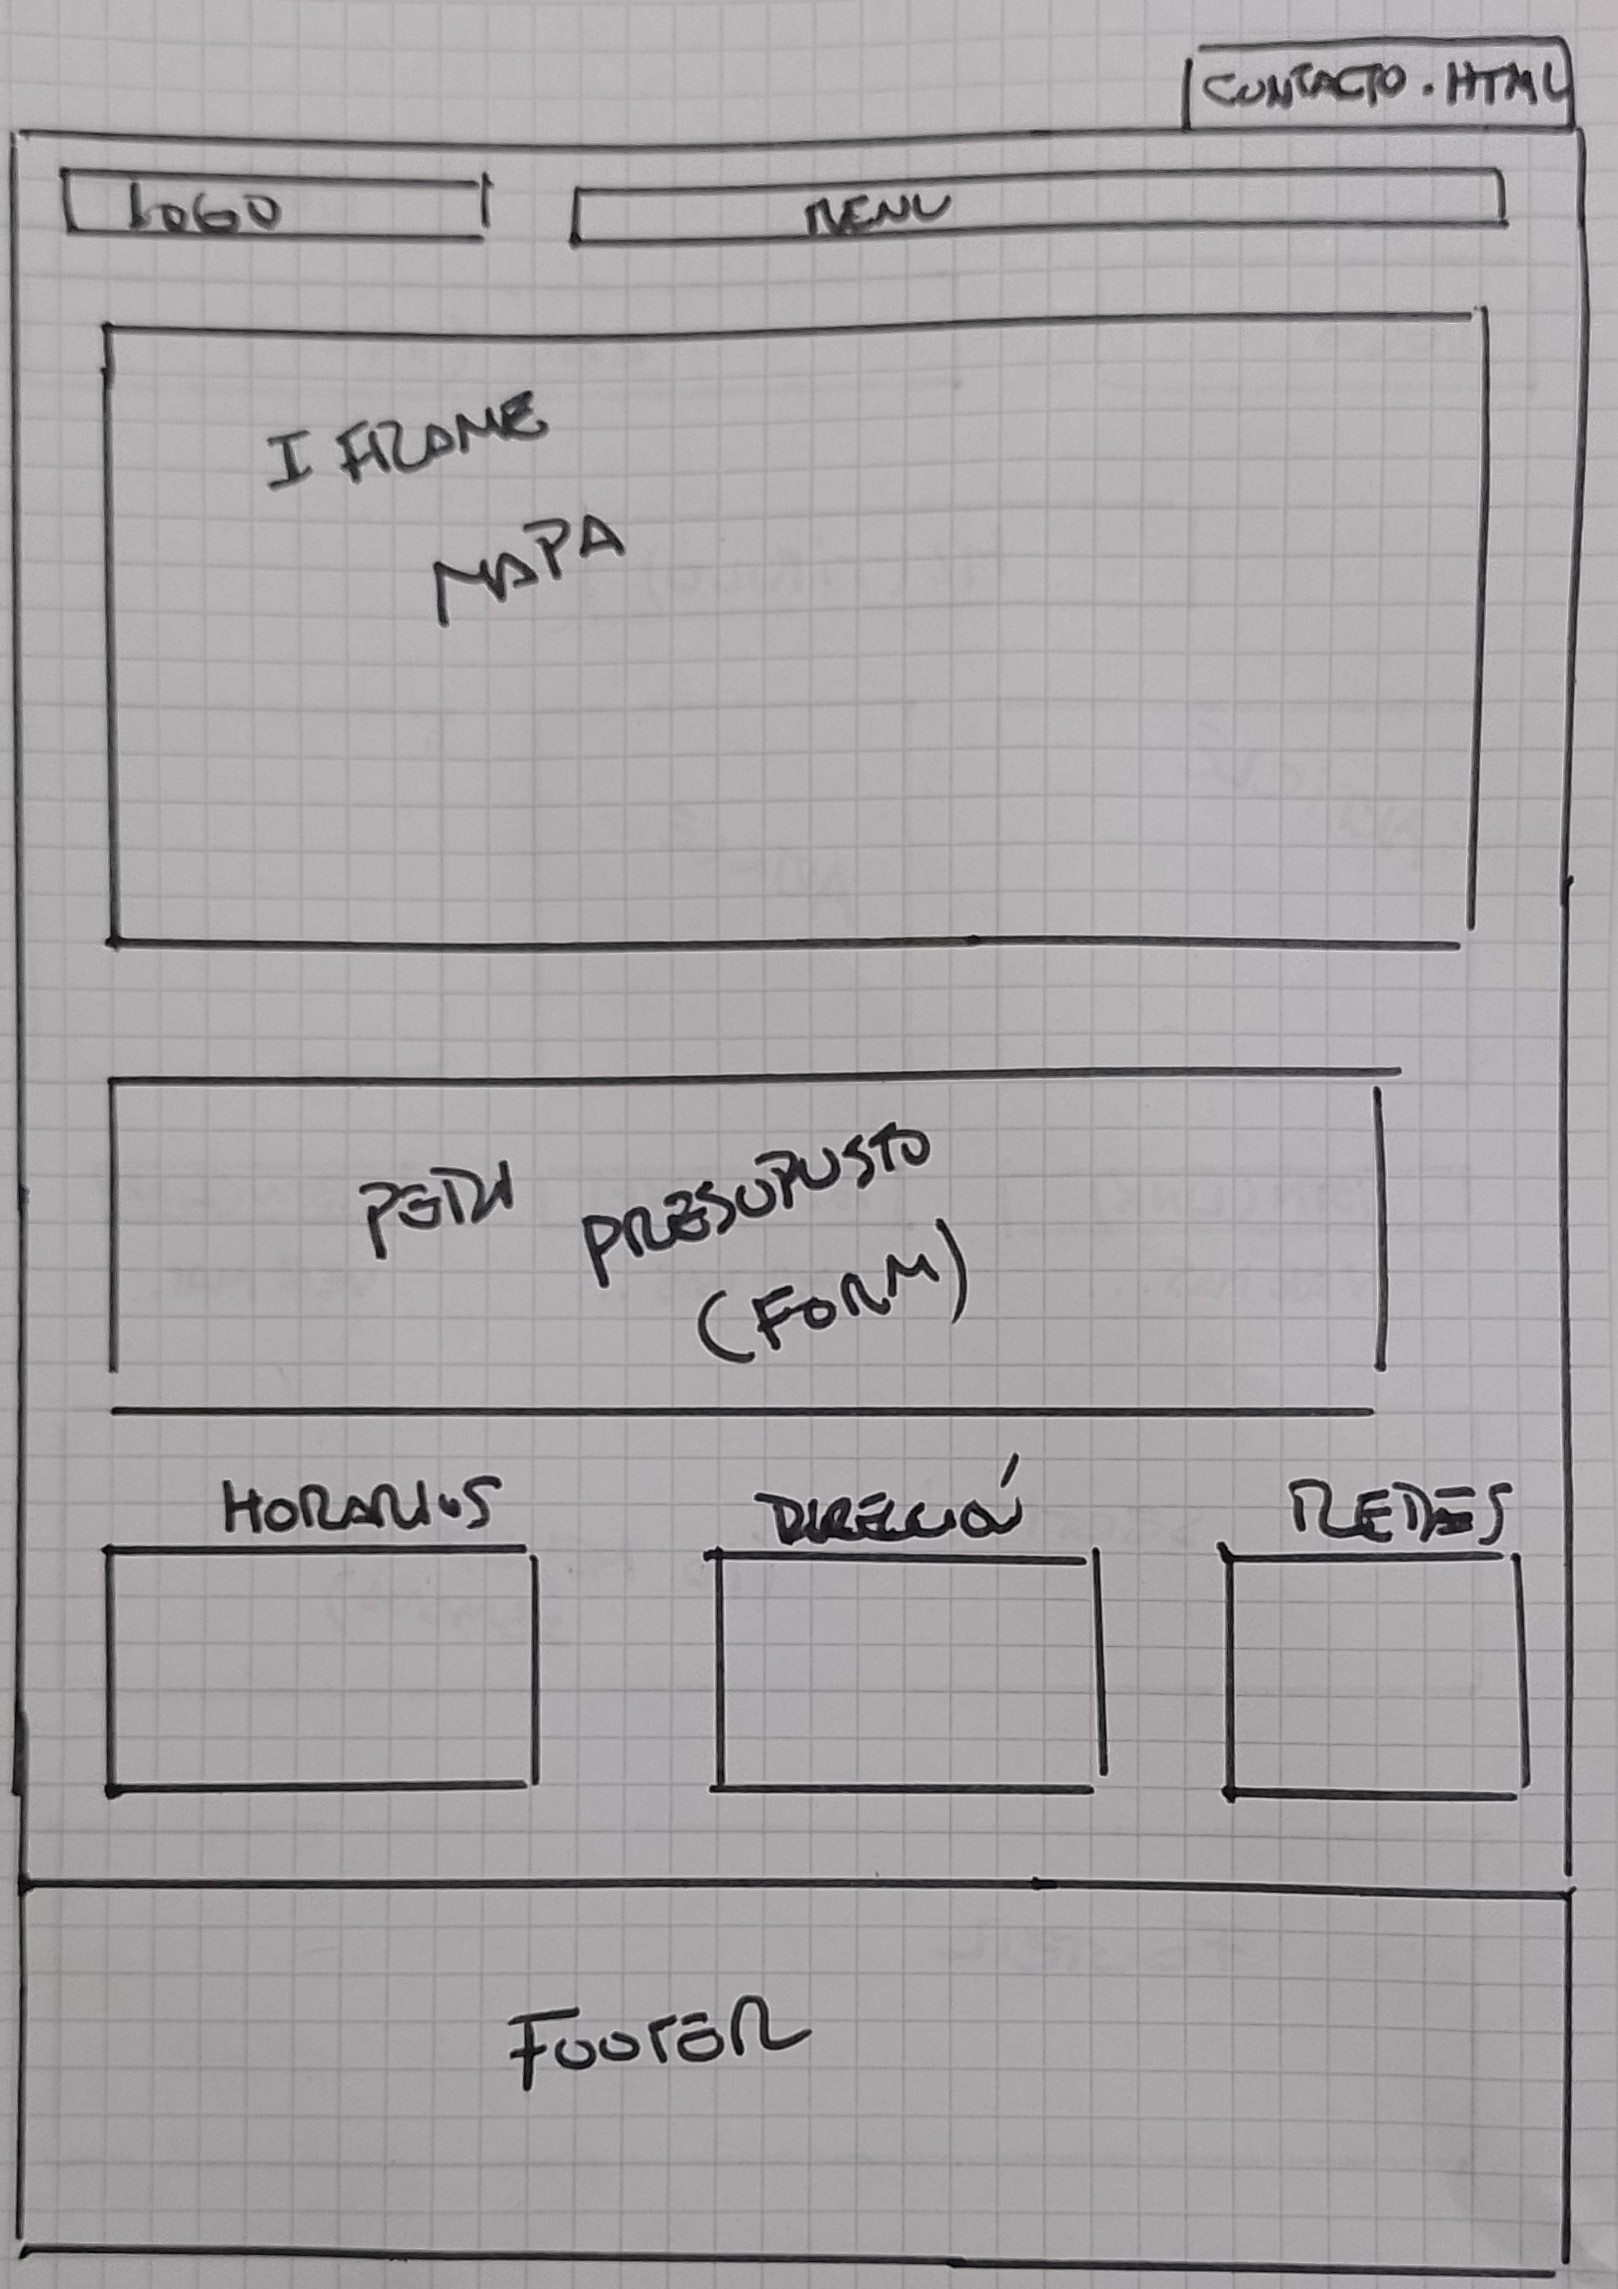 CONTACTO.HTML
LOGO
MENU
IFRAME
MAPA
PEDI PRESUPUSTO
(FORM)
HORARIOS DIRECCIÓN REDES
FOOTER